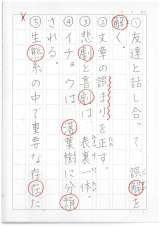 ①友達と話し合って、誤解を
解く。
②文章の誤りを正す。
③悲劇と喜劇は表裏一体。
④イチョウは落葉樹に分類
される。
⑤生態系の中で重要な存在だ